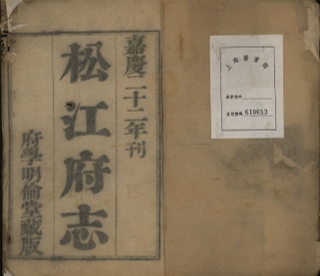 嘉慶二十二年刊
松江府志
府學明倫堂藏版
上海圖書館
618653